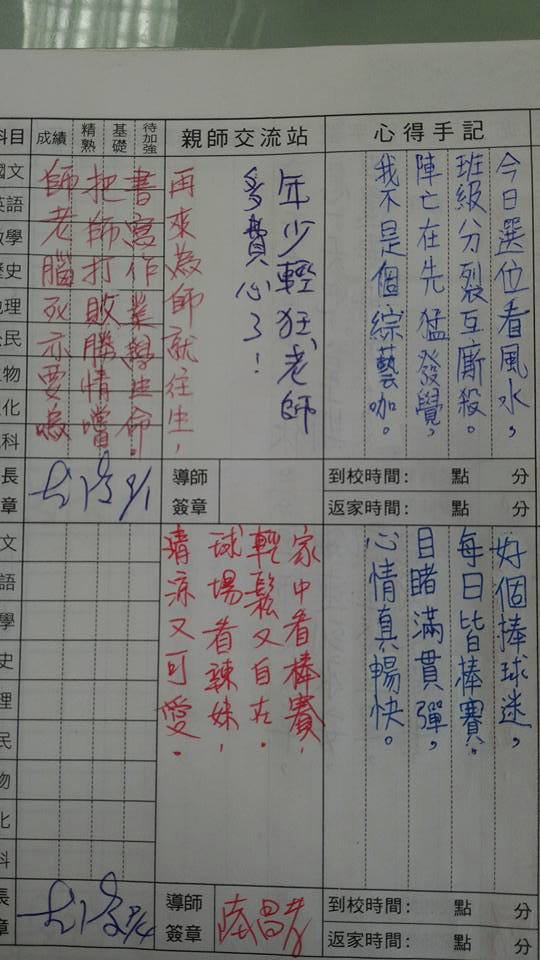 心得手記
親師交流站
待加強
基礎
精熟
成績
科目
今日選位看風水,
班級分裂互廝殺。
陣亡在先猛發覺,
我不是個綜藝咖。
年少輕狂,老師
多費心了!
再來為師就往生,
書寫作業學生命。
把師打敗勝情噹
師老腦死亦要嗚
國文
英語
數學
歷史
地理
公民
物
化
科
長
章
9/1
導師
簽章
到校時間: 點 分
返家時間: 點 分
好個棒球迷,
每日皆棒賽。
目睹滿貫彈,
心情真暢快。
家中看棒賽,
輕鬆又自在.
球場看辣妹,
清涼又可愛.
文
語
學
史
理
民
物
化
科
長
章
9/4
導師
簽章
到校時間: 點 分
返家時間: 點 分